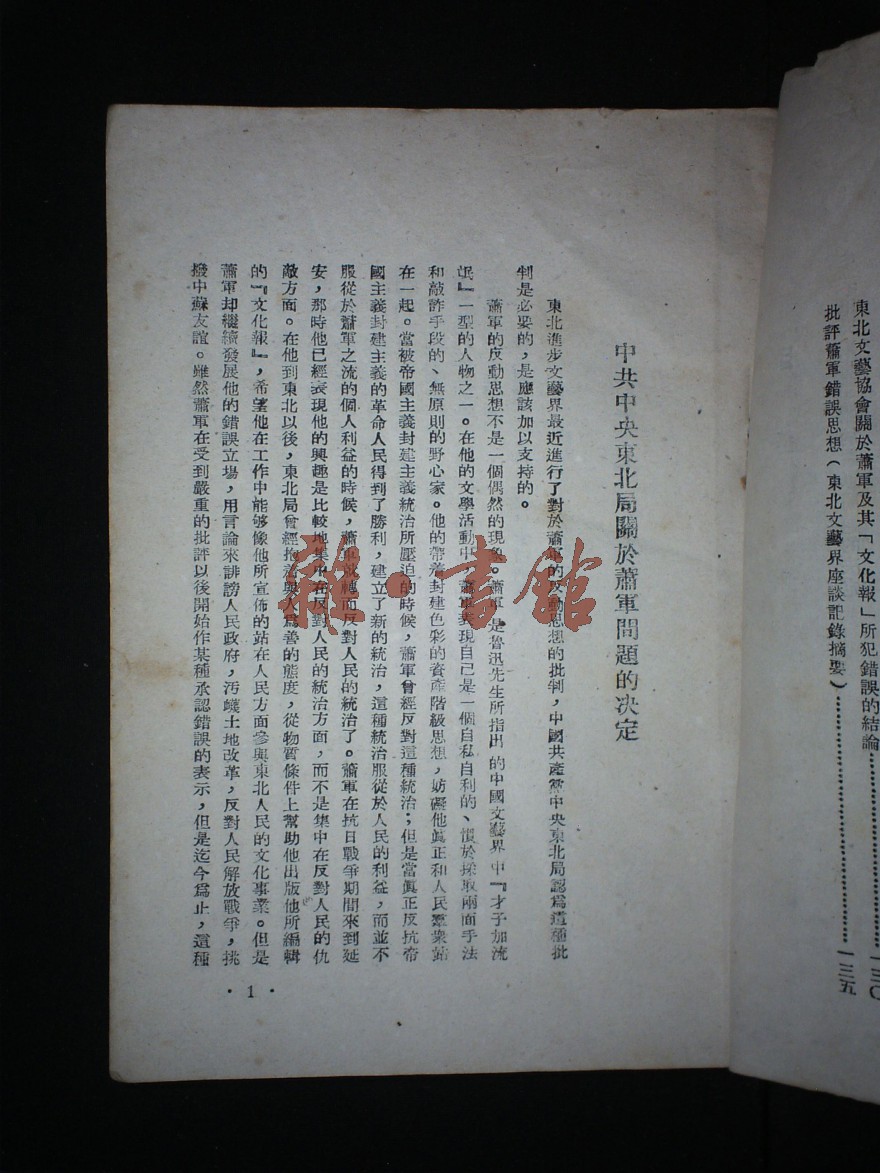 東北文藝協會關於蕭軍及其「文化報」所犯錯誤的結論…………一三〇
批評蕭軍錯誤思想(東北文藝界座談記錄摘要)…………一三五
中共中央東北局關於蕭軍問題的決定
東北進步文藝界最近進行了對於蕭軍的反動思想的批判,中國共產黨中央東北局認爲這種批
判是必要的,是應該加以支持的。
蕭軍的反動思想不是一個偶然的現象。蕭軍是魯迅先生所指出的中國文藝界中『才子加流
氓』一型的人物之一。在他的文學活動中,蕭軍表現自己是一個自私自利的、慣於採取兩面手法
和敲詐手段的、無原則的野心家。他的帶着封建色彩的資產階級思想,妨礙他眞正和人民羣衆站
在一起。當被帝國主義封建主義統治所壓迫的時候,蕭軍曾經反對這種統治;但是當眞正反抗帝
國主義封建主義的革命人民得到了勝利,建立了新的統治,這種統治服從於人民的利益,而並不
服從於蕭軍之流的個人利益的時候,蕭軍就轉而反對人民的統治了。蕭軍在抗日戰爭期間來到延
安,那時他已經表現他的興趣是比較地集中在反對人民的統治方面,而不是集中在反對人民的仇
敵方面。在他到東北以後,東北局曾經抱着與人爲善的態度,從物質條件上幫助他出版他所編輯
的『文化報』,希望他在工作中能够像他所宣佈的站在人民方面參與東北人民的文化事業。但是
蕭軍却繼續發展他的錯誤立場,用言論來誹謗人民政府,汚衊土地改革,反對人民解放戰爭,挑
撥中蘇友誼。雖然蕭軍在受到嚴重的批評以後開始作某種承認錯誤的表示,但是迄今爲止,這種
·1·
雜·書館